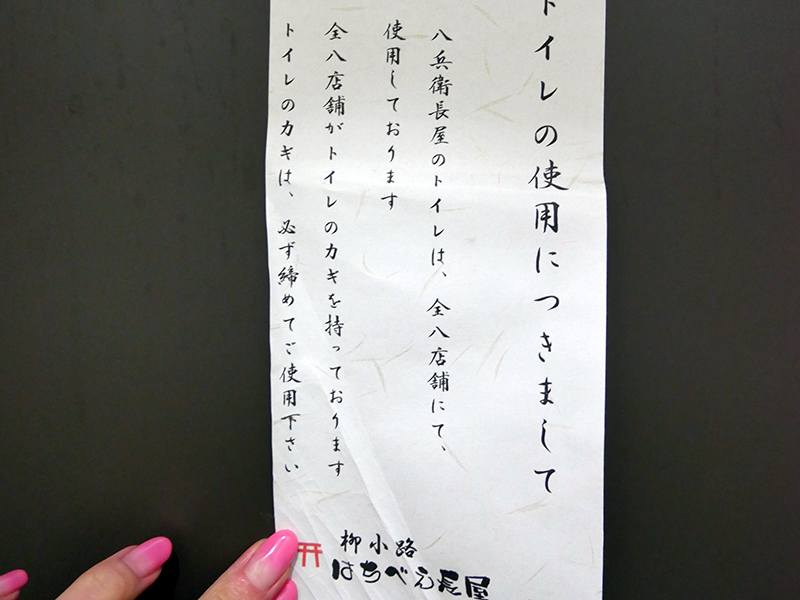 トイレの使用につきまして
八兵衛長屋のトイレは、全八店舗にて、
使用しております
全八店舗がトイレのカギを持っております
トイレのカギは、必ず締めてご使用下さい
柳小路
はちべえ長屋